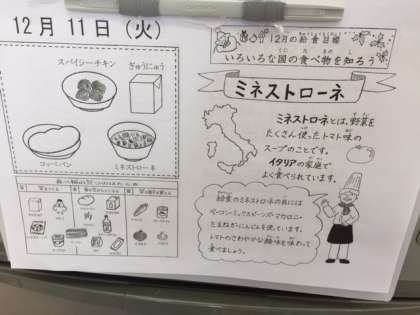 12月11日（火）
スパイシーチキン
ぎゅうにゅう
コッペパン
ミネストローネ
12月の給食目標
いろいろな国の食べ物を知ろう
ミネストローネ
ミネストローネとは、野菜を
たくさん使ったトマト味の
スープのことです。
イタリアの家庭で
よく食べられています。
給食のミネストローネの具には
ベーコン・ミックスビーンズ・マカロニ・
たまねぎ・にんにくを使っています。
トマトのさわやかな酸味を味わって
食べましょう。